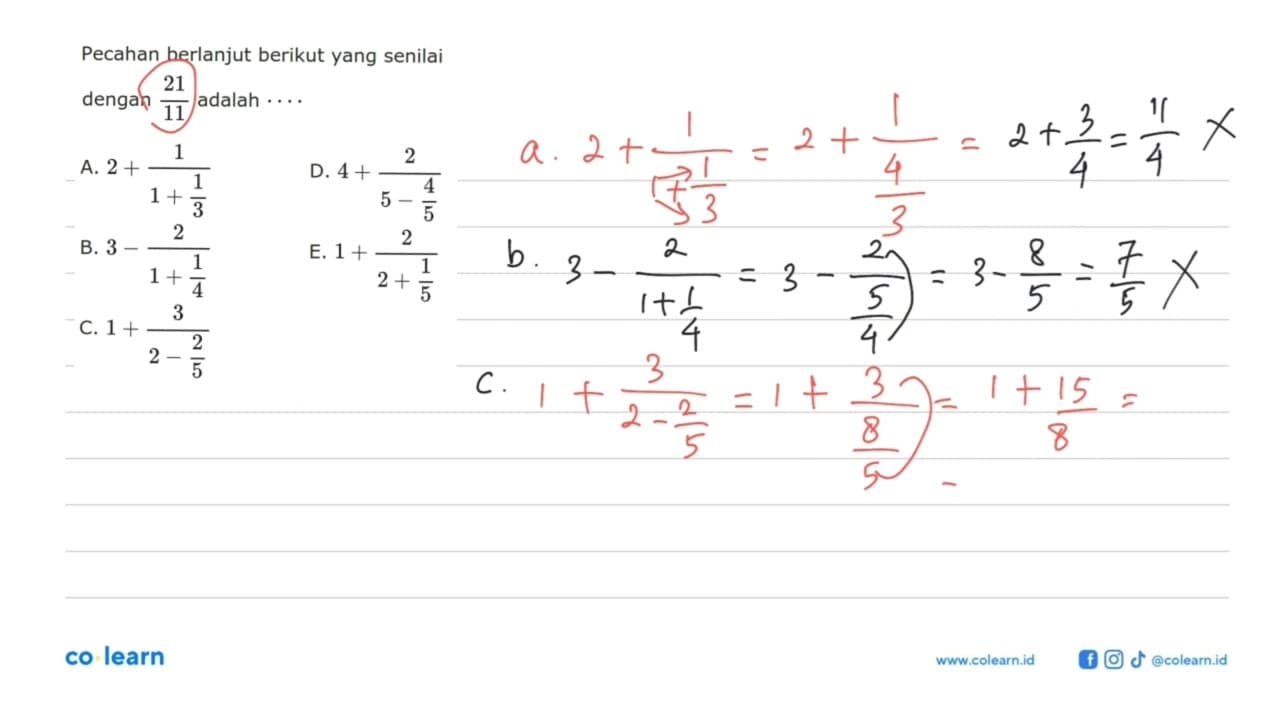 Pecahan berlanjut berikut yang senilai
dengan 21/11 adalah ....
A. 2 + 1/(1 + 1/3)
B. 3 − 2/(1 + 1/4)
C. 1 + 3/(2 − 2/5)
D. 4 + 2/(5 − 4/5)
E. 1 + 2/(2 + 1/5)
a. 2 + 1/(1 + 1/3) = 2 + 1/(4/3) = 2 + 3/4 = 11/4 X
b. 3 − 2/(1 + 1/4) = 3 − 2/(5/4) = 3 − 8/5 = 7/5 X
c. 1 + 3/(2 − 2/5) = 1 + 3/(8/5) = 1 + 15/8 =
=
co learn
www.colearn.id
@colearn.id